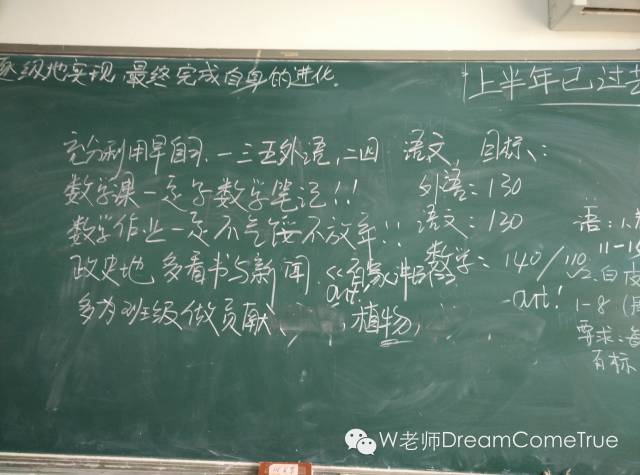 逐级地实现,最终完成自身的进化.
上半年已过去
充分利用早自习.一三五外语,二四 语文,目标:
数学课一定予数学笔记!!
外语:130
数学作业一定不气馁不放弃!!
语文:130
政史地 多看书与新闻.
数学:140/110
art!
多为班级做贡献
植物,
-art!
语:
1-8
要求:
有标
W老师DreamComeTrue